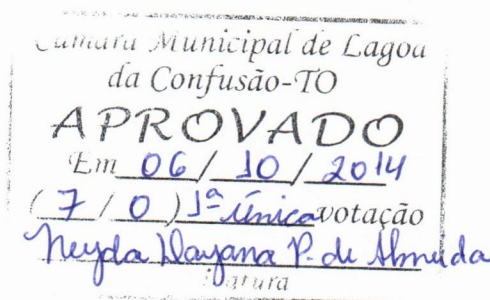 Câmara Municipal de Lagoa
da Confusão-TO
APROVADO
Em 06/10/2014
(7/0) 1ª única votação
Neyda Dayana P. de Almeida